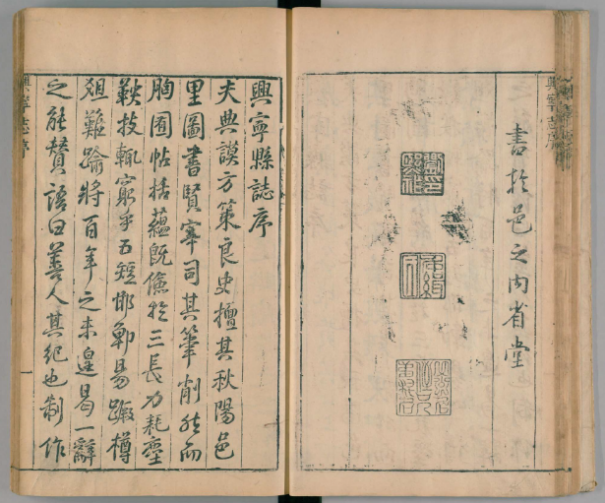 興寧誌序
書於邑之内省堂
興寧縣誌序
夫典謨方策良史擅其秋陽邑
里圖書賢宰司其筆削然而
胸囿帖括蘊既儉於三長力耗塵
鞅技輒窮乎五短邯鄲易樽
俎難踰將百年之未遑曷一辭
之能贊語曰善人其紀也制作
興寧誌序
一